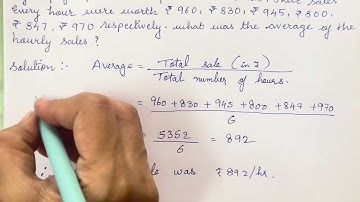 every hour were worth ₹ 960, ₹ 830, ₹ 945, ₹ 800,
₹ 847, ₹ 970 respectively. what was the average of the
hourly sales ?
Solution :- Average = Total sale (in ₹)
Total number of hours.
= 960 + 830 + 945 + 800 + 847 + 970
6
= 5352 = 892
6
was ₹ 892/hr.